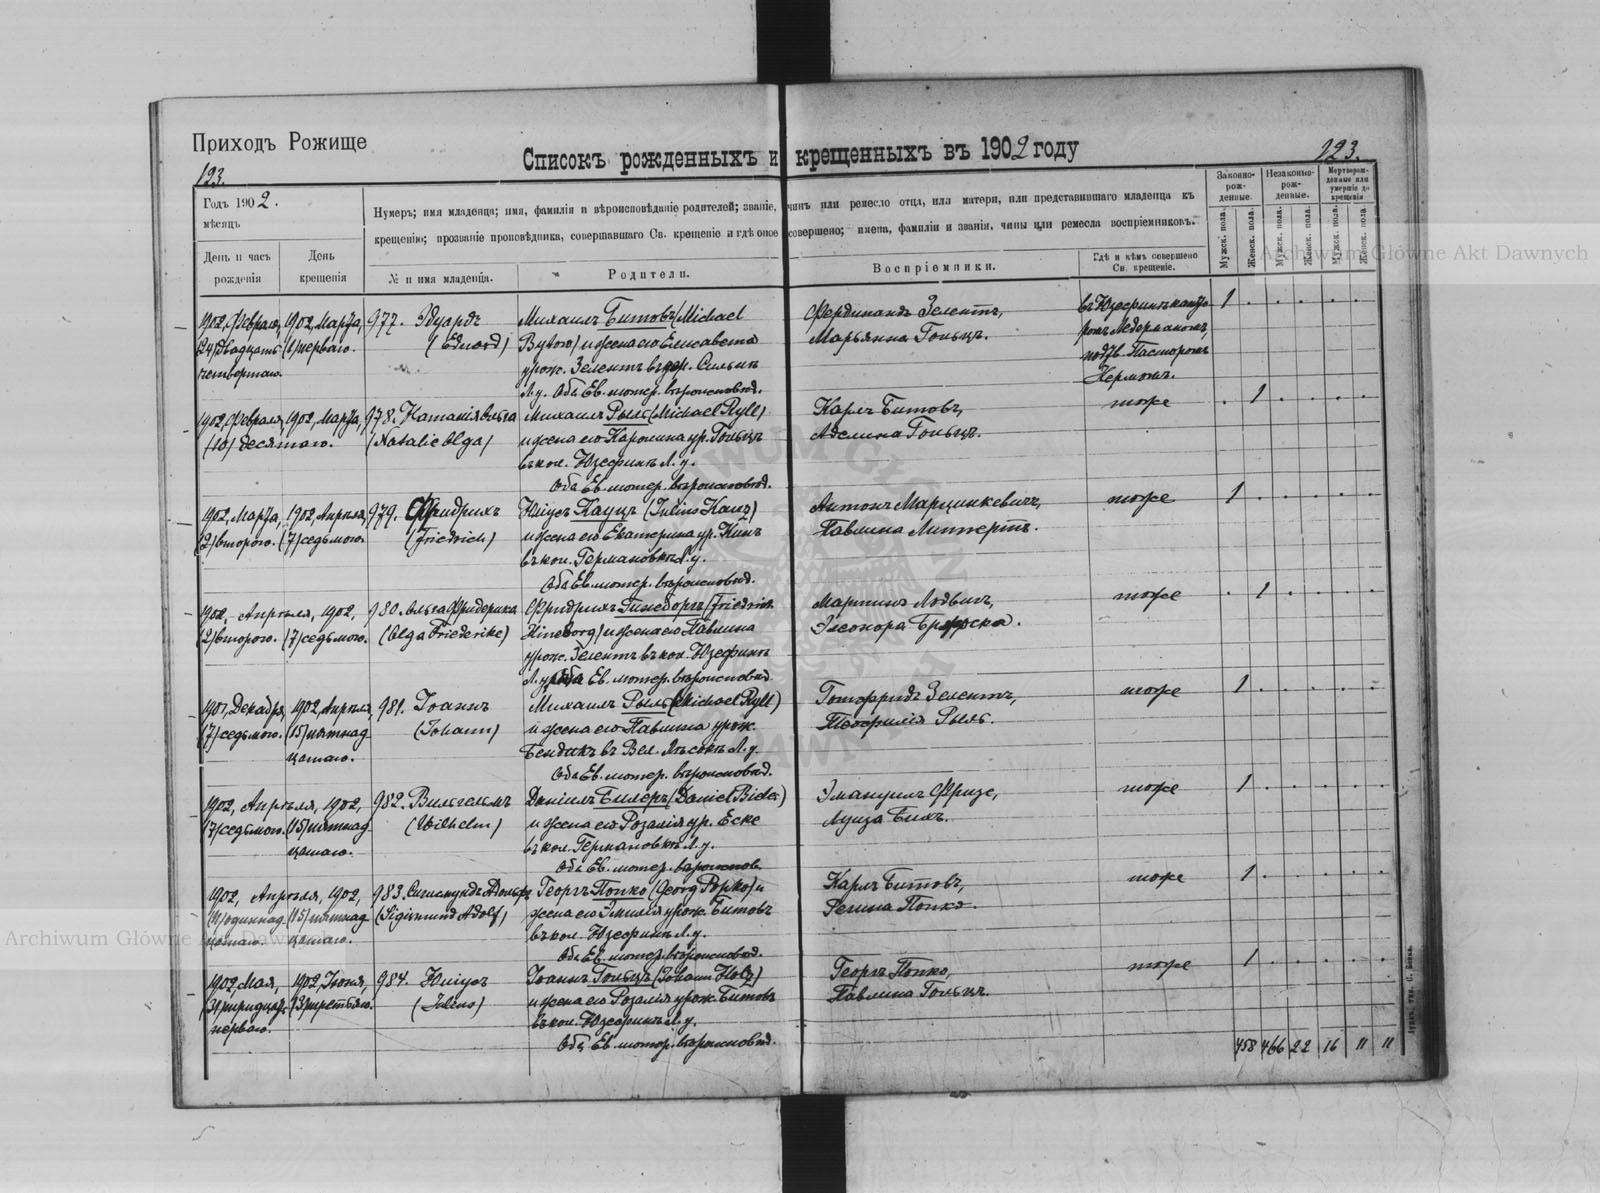 Приходъ Рожище
Списокъ рожденныхъ и крещенныхъ въ 1902 году
123.
123.
Годъ 1902.
мѣсяцъ
День и часъ рожденія
День крещенія
Нумеръ; имя младенца; имя, фамилія и вѣроисповѣданіе родителей; званіе, чинъ или ремесло отца, или матери, или представившаго младенца къ
крещенію; прозваніе проповѣдника, совершавшаго Св. крещеніе и гдѣ оное совершено; имена, фамиліи и званія, чины или ремесла воспріемниковъ.
№ и имя младенца.
Родители.
Воспріемники.
Гдѣ и кѣмъ совершено Св. крещеніе.
Законно-рож-денные.
Незаконно-рож-денные.
Мертворож-денные или умершіе до крещенія
Мужск. пола.
Женск. пола.
Мужск. пола.
Женск. пола.
Мужск. пола.
Женск. пола
1902, Февраля,
(24) двадцать
четвертаго.
1902, Марта,
(1) перваго.
977. Эдуардъ
(Eduard)
Михаилъ Битовъ (Michael
) и жена его Елисавета
урож. Зелентъ въ
Л.у. Оба Ев. лютер. вѣроисповѣд.
Фердинандъ Зелентъ,
Марьянна Гольцъ.
въ Юзефинѣ канто
ромъ Ледерманомъ,
подтв. Пасторомъ
Керномъ.
1
1902, Февраля,
(10) десятаго.
1902, Марта,
978. Наталія Ольга
(Natalie Olga)
Михаилъ Рыль (Michael Ryll)
и жена его Каролина ур. Гольцъ
въ кол. Юзефинѣ Л.у.
Оба Ев. лютер. вѣроисповѣд.
Карлъ Битовъ,
Аделина Гольцъ.
тоже
1
1902, Марта,
(2) второго.
1902, Апрѣля,
(7) седьмого.
979. Фридрихъ
(Friedrich)
Юліусъ Кауцъ (Julius Kauz)
и жена его Екатерина ур. Кинъ
въ кол. Германовкѣ Л.у.
Оба Ев. лютер. вѣроисповѣд.
Антонъ Марцинкевичъ,
Павлина Липпертъ.
тоже
1
1902, Апрѣля, 1902,
(2) второго.
(7) седьмого.
980. Ольга Фридерика
(Olga Friederike)
Фридрихъ Гинеборгъ (Friedrich
Hineborg) и жена его Павлина
урож. Зелентъ въ кол. Юзефинѣ
Л.у. Оба Ев. лютер. вѣроисповѣд.
Мартинъ Людвигъ,
Элеонора
тоже
1
1901, Декабря,
(7) седьмого.
1902, Апрѣля,
(15) пятнад
цатаго.
981. Іоаннъ
(Johann)
Михаилъ Рыль (Michael Ryll)
и жена его Павлина урож.
Бендикъ въ Вел. Лѣсокѣ Л.у.
Оба Ев. лютер. вѣроисповѣд.
Готфридъ Зелентъ,
Теофилія Рыль.
тоже
1
1902, Апрѣля, 1902,
(7) седьмого.
(15) пятнад
цатаго.
982. Вильгельмъ
(Wilhelm)
Даніилъ Бидеръ (Daniel Bider)
и жена его Розалія ур. Еске
въ кол. Германовкѣ Л.у.
Оба Ев. лютер. вѣроисповѣд.
Эмануилъ Фризе,
Луиза Бихъ.
тоже
1
1902, Апрѣля, 1902,
(11) одиннад
цатаго.
(15) пятнад
цатаго.
983. Сигисмундъ Адольфъ
(Sigismund Adolf)
Георгъ Попко (Georg Popko) и
жена его Эмилія урож. Битовъ
въ кол. Юзефинѣ Л.у.
Оба Ев. лютер. вѣроисповѣд.
Карлъ Битовъ,
Регина Попко.
тоже
1
1902, Мая,
(31) тридцать
перваго.
1902, Іюня,
(3) третьяго.
984. Юліусъ
(Julius)
Іоаннъ Гольцъ (Johann Holz)
и жена его Розалія урож. Битовъ
въ кол. Юзефинѣ Л.у.
Оба Ев. лютер. вѣроисповѣд.
Георгъ Попко,
Павлина Гольцъ.
тоже
1
458 466 22 16 11 11
Archiwum Główne Akt Dawnych
Archiwum Główne Akt Dawnych